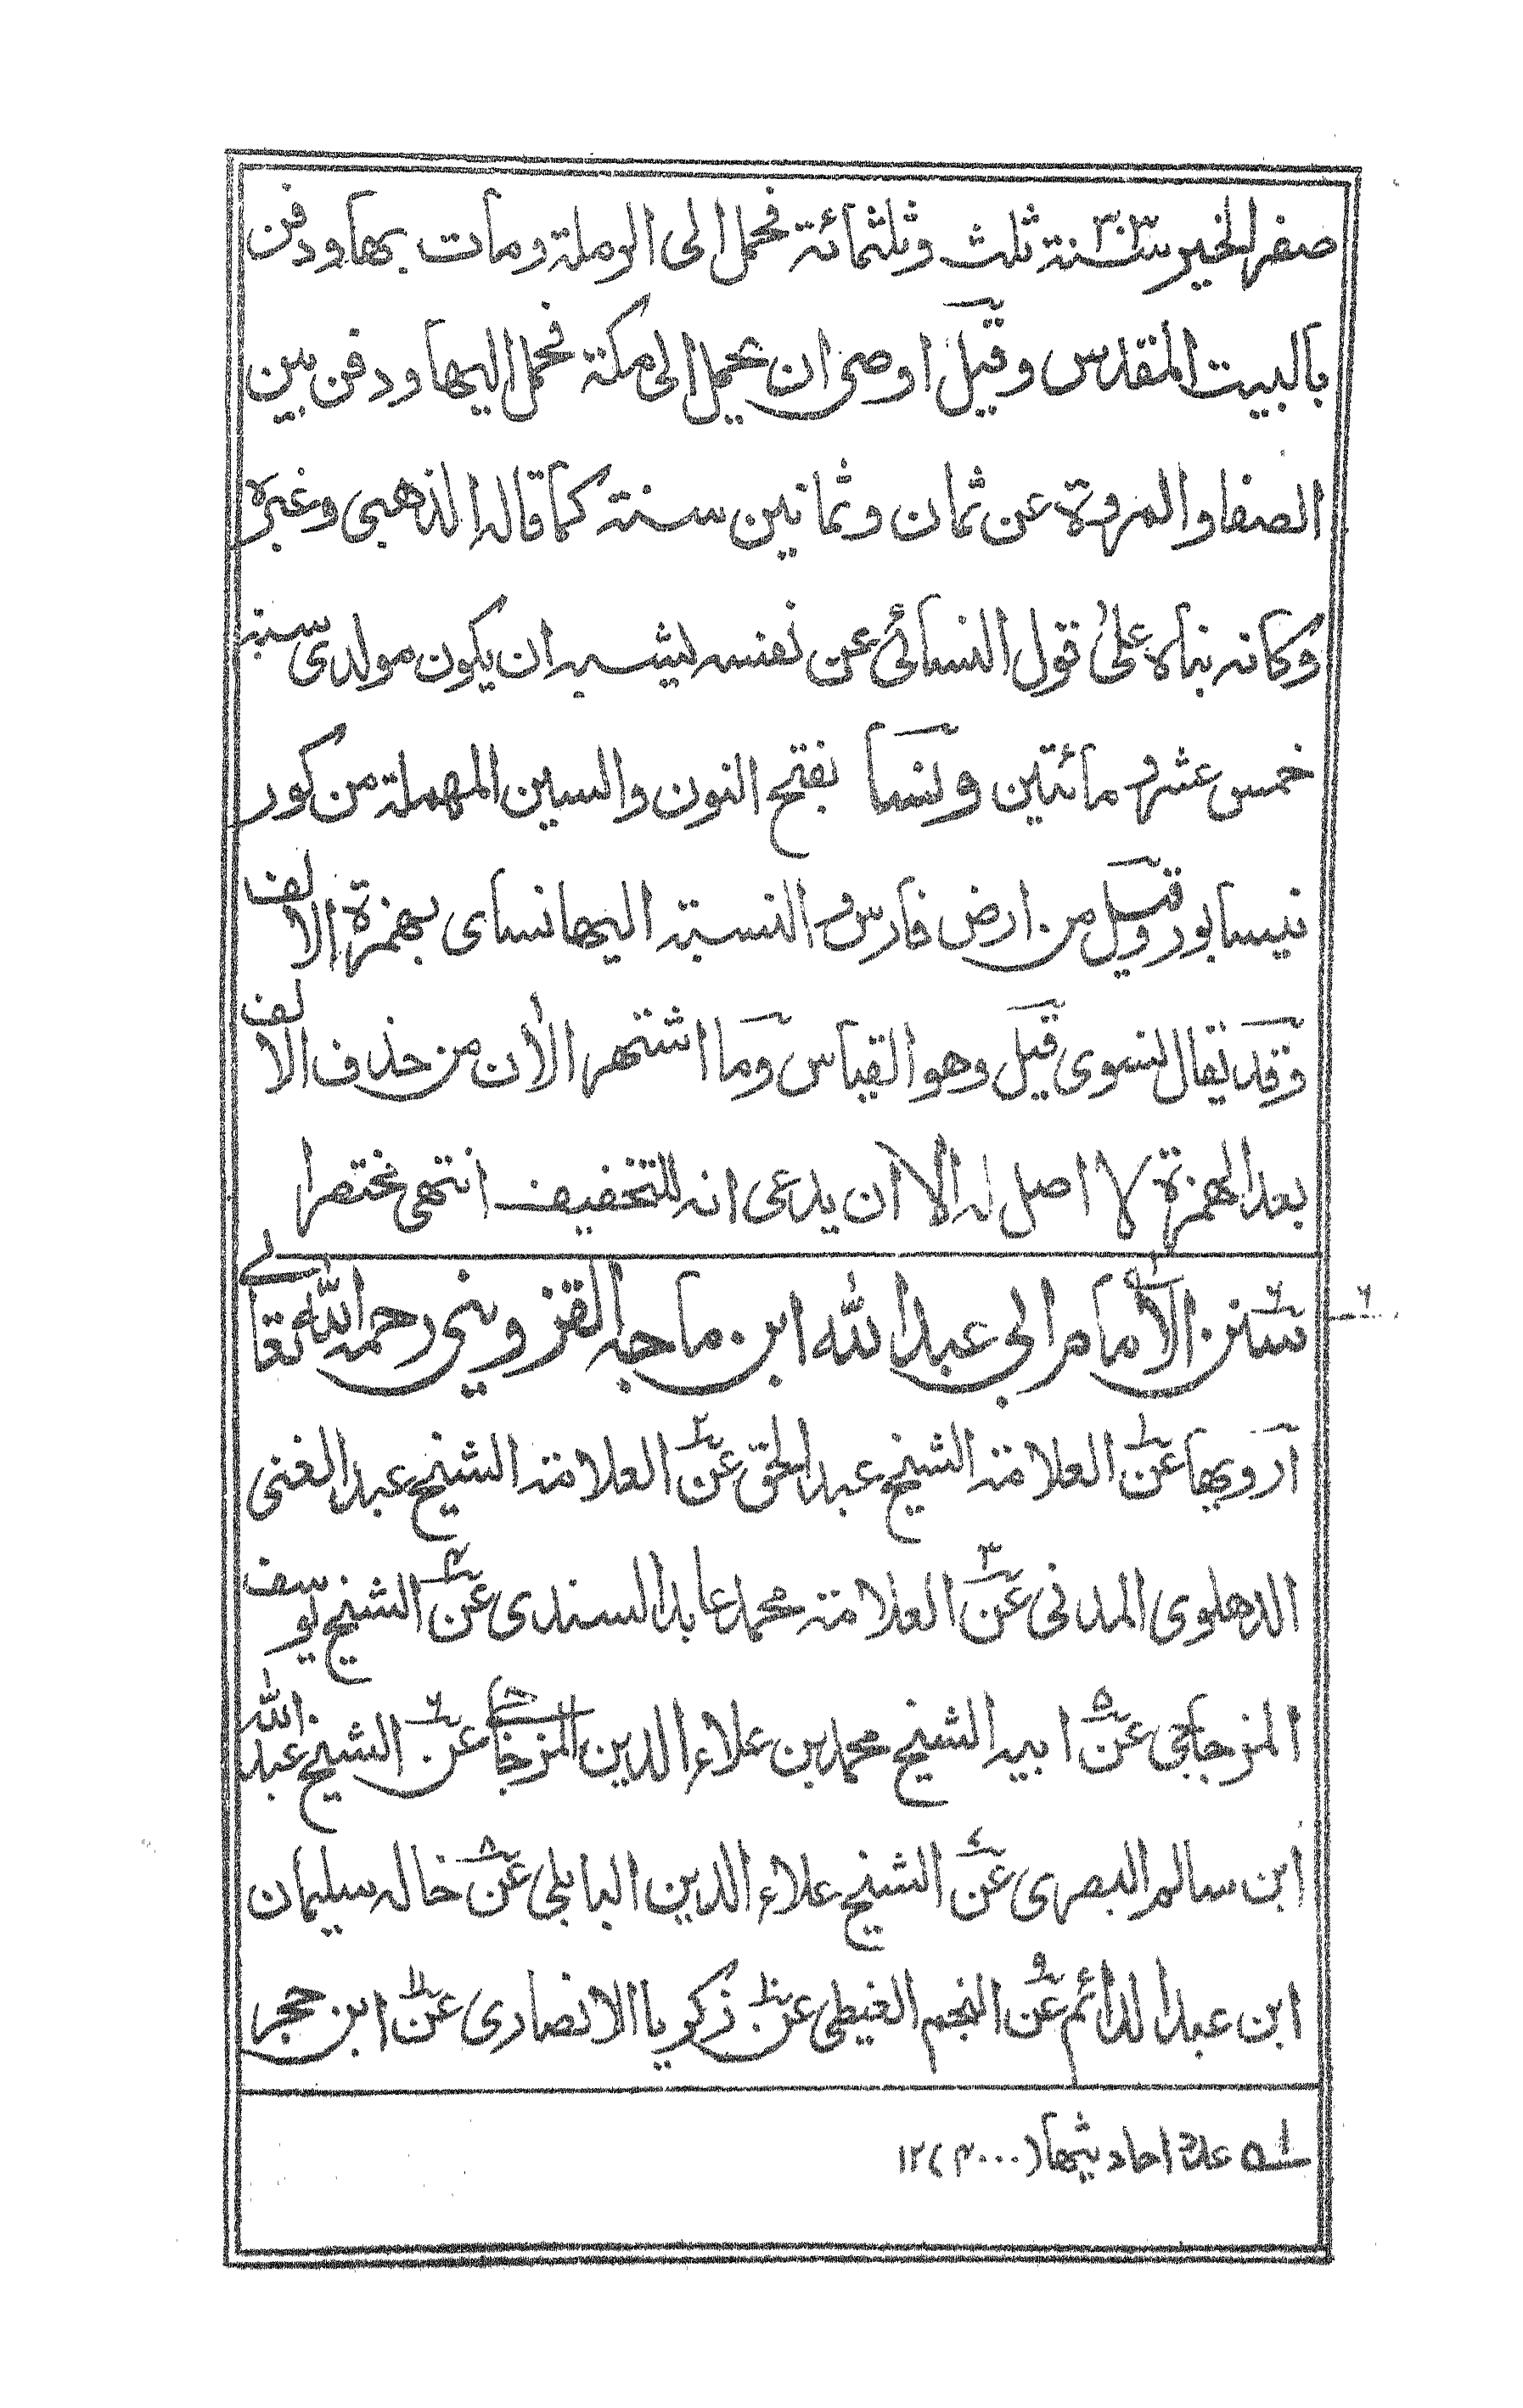 صفر الخير سنة ۳۰۳ ثلث وثلثمائة فحمل الى الرملة ومات بها ودفن
بالبيت المقدس وقيل اوصى ان يحمل الى مكة فحمل اليها ودفن بين
الصفا والمروة عن ثمان وثمانين سنة كما قاله الذهبى وغيره
وكانه بناه على قول النسائى عن نفسه ليشبه ان يكون مولدى سنة
خمس عشر ومائتين ونسا بفتح النون والسين المهملة من كور
نيسابور وقيل من ارض فارس والنسبة اليها نساى بهمزة الالف
وقد يقال نسوى قيل وهو القياس وما اشتهر الأن من حذف الالف
بعد الهمزة لا اصل له الا ان يدعى انه للتخفيف انتهى مختصرا
٦ سنن الامام ابى عبد الله ابن ماجه القزوينى رحمه الله تعالے
ارويها عن ۱ العلامة الشيخ عبد الحق عن ۲ العلامة الشيخ عبد الغنى
الدهلوى المدنى عن ۳ العلامة محمد عابد السندى عن ۴ الشيخ يوسف
المزجاجى عن ۵ ابيه الشيخ محمد بن علاء الدين المزجاجى عن ٦ الشيخ عبد الله
ابن سالم البصرى عن ۷ الشيخ علاء الدين البابلى عن ۸ خاله سليمان
ابن عبد الدائم عن ۹ النجم الغيطى عن ۱۰ زكريا الانصارى عن ۱۱ ابن حجر
ا ه عدة احاديثها (۴۰۰۰) ۱۲